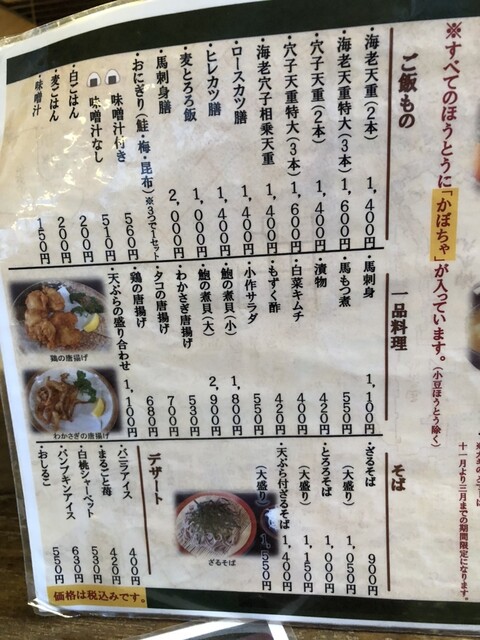 ※すべてのほうとうに「かぼちゃ」が入っています。(小豆ほうとう除く)
十一月より三月までの期間限定になります。
ご飯もの
・海老天重(2本) 1,400円
・海老天重特大(3本) 1,600円
・穴子天重(2本) 1,400円
・穴子天重特大(3本) 1,600円
・海老穴子相乗天重 1,400円
・ロースカツ膳 1,400円
・ヒレカツ膳 1,400円
・麦とろろ飯 1,000円
・馬刺身膳 2,000円
・おにぎり(鮭・梅・昆布)※3つで1セット
味噌汁付き 560円
味噌汁なし 510円
・白ごはん 200円
・麦ごはん 200円
・味噌汁 150円
一品料理
・馬刺身 1,100円
・馬もつ煮 550円
・漬物 420円
・白菜キムチ 400円
・もずく酢 420円
・小作サラダ 550円
・鮑の煮貝(小) 1,800円
・鮑の煮貝(大) 2,900円
・わかさぎ唐揚げ 530円
・タコの唐揚げ 700円
・鶏の唐揚げ 680円
・天ぷらの盛り合わせ 1,100円
鶏の唐揚げ
わかさぎの唐揚げ
そば
・ざるそば 900円
(大盛り) 1,050円
・とろろそば 1,000円
(大盛り) 1,150円
・天ぷら付ざるそば 1,400円
(大盛り) 1,550円
ざるそば
デザート
・バニラアイス 400円
・まるごと苺 420円
・白桃シャーベット 530円
・パンプキンアイス 630円
・おしるこ 550円
価格は税込みです。